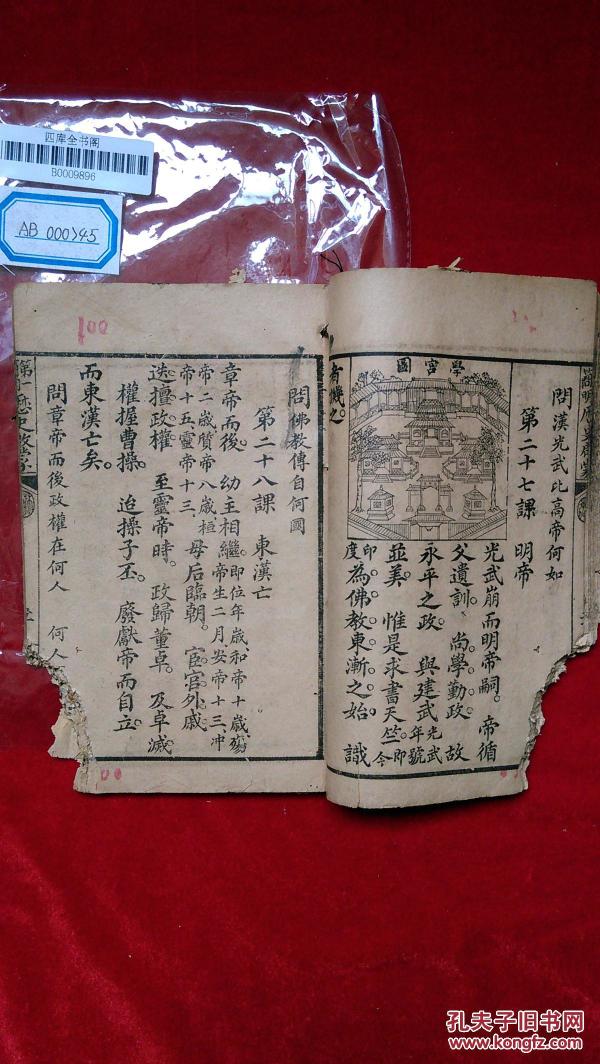 四库全书阁
B0009896
AB 000745
100
問漢光武比高帝何如
第二十七課　明帝
光武崩而明帝嗣。帝循
父遺訓。尚學勤政。故
永平之政　與建武光武年號
並美。　惟是求書天竺即今
印度為佛教東漸之始　識
者譏之
學宮圖
問佛教傳自何國
第二十八課　東漢亡
章帝而後　幼主相繼。即位年歲、和帝十歲殤
帝生二月安帝十三冲
帝二歲質帝八歲桓
帝十五靈帝十三。母后臨朝。宦官外戚
迭擅政權　至靈帝時。政歸董卓。及卓滅
權握曹操。迨操子丕。廢獻帝而自立。
而東漢亡矣。
問章帝而後政權在何人　何人
00
孔夫子旧书网
www.kongfz.com